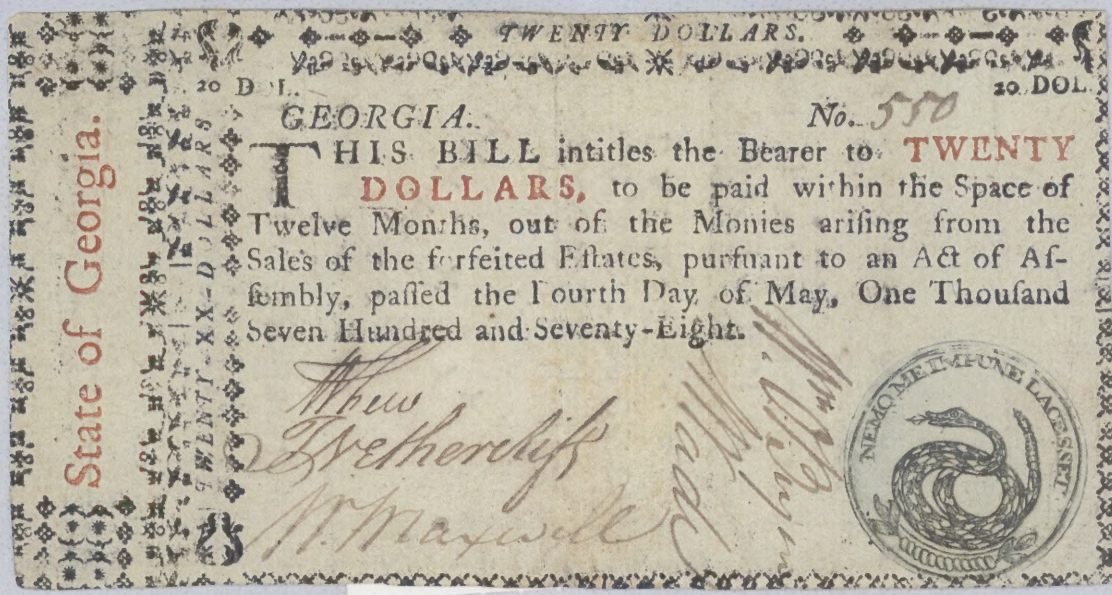 TWENTY DOLLARS.
20 DOL.
20 DOL.
GEORGIA.
No. 550
THIS BILL intitles the Bearer to TWENTY
DOLLARS, to be paid within the Space of
Twelve Months, out of the Monies ariſing from the
Sales of the forfeited Eſtates, purſuant to an Act of Aſ-
ſembly, paſſed the Fourth Day of May, One Thouſand
Seven Hundred and Seventy-Eight.
State of Georgia.
TWENTY-XX-DOLLARS
W. Maxwell
Wm
NEMO ME IMPUNE LACESSET